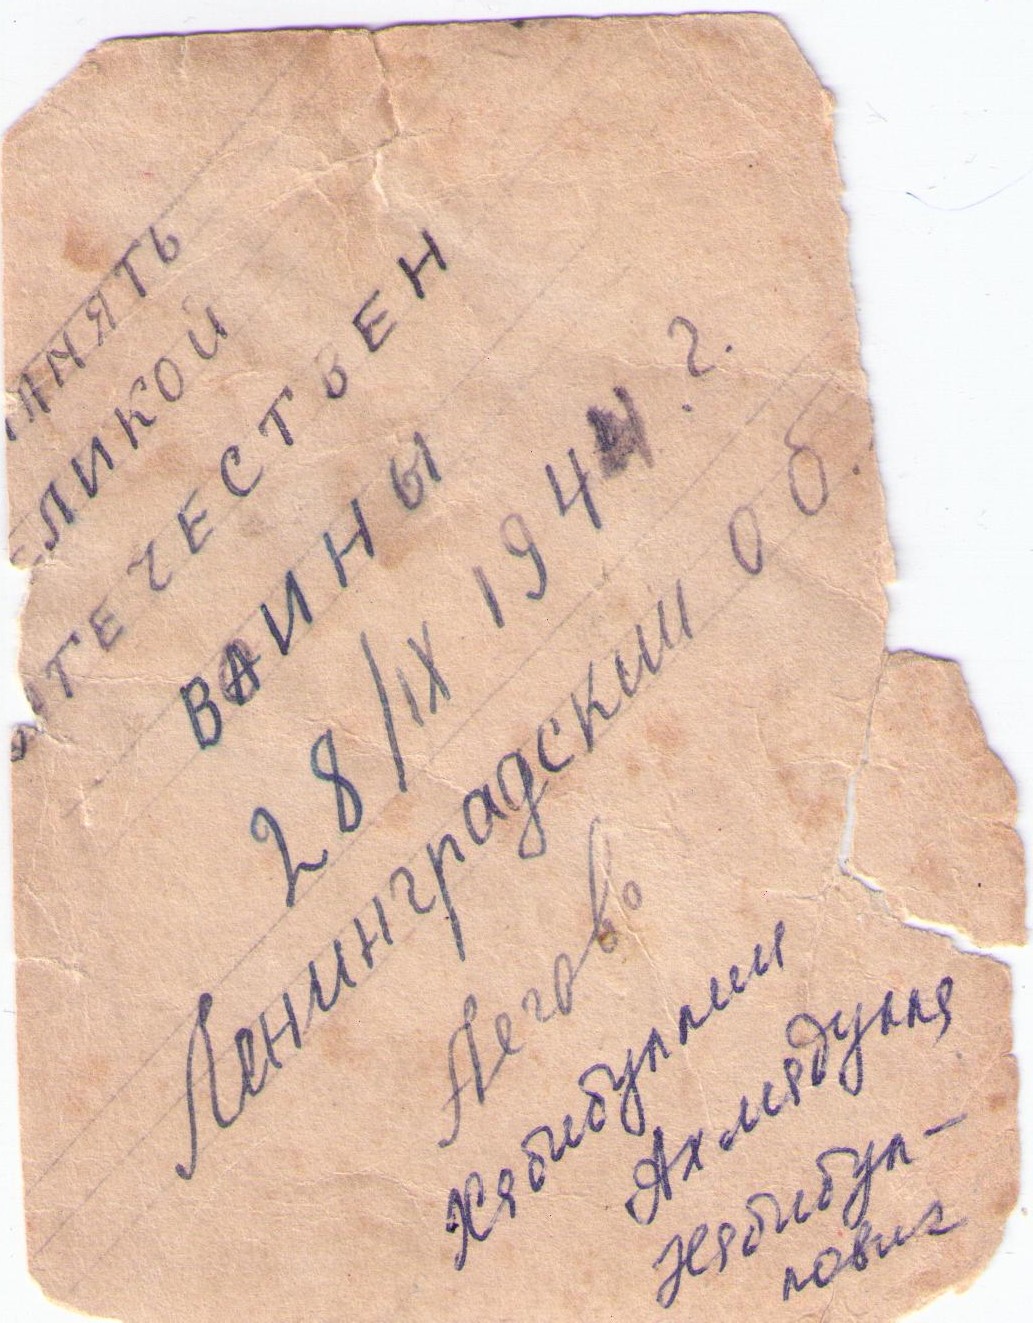 ПАМЯТЬ
ЕЛИКОЙ
ОТЕЧЕСТВЕН
ВАИНЫ
28/IX 1944.г.
Ленинградский об.
Легово
Хябибуллин
Ахмядулля
Хябибул-
лович